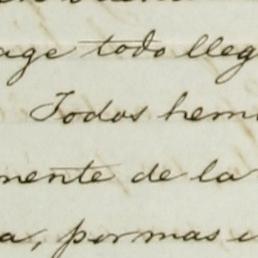 age todo lleg
Todos hem
mente de la
a, por mas e